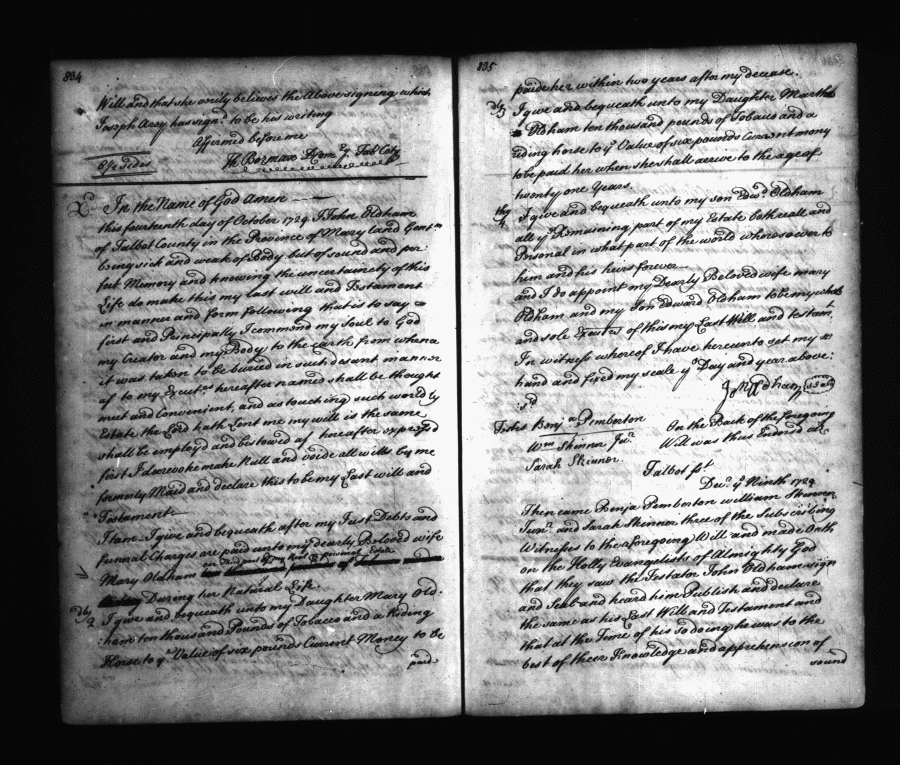 834
Will and that she verily believes the Above signing which
Joseph Arey has sign.d to be his writing
Affirmed before me
Th: Bozman Depty Com.ry Talb.t Coty
Esqr Sides
In the Name of God Amen
this fourteenth day of October 1729 I John Oldham
of Talbot County in the Province of Mary land Gent.n
being sick and weak of Body but of sound and per:
fect Memory and knowing the uncertainety of this
Life do make this my Last will and Testament
in manner and form following that is to say
first and Principally I commend my Soul to God
my Creator and my Body to the earth from whence
it was taken to be buried in such desent manner
as to my Execut.rs hereafter named shall be thought
meet and Convenient, and as touching such worldly
Estate the Lord hath Lent me my will is the same
shall be employ'd and bestowed as hereafter expressed
first I do revoke make Null and voide all wills by me
formerly Maid and declare this to be my Last will and
Testament
Item. I give and bequeath after my Just Debts and
funeral Charges are paid unto my dearly Beloved wife
one third part of my Real & personal Estate
Mary Oldham
During her Natural Life
2 I give and bequeath unto my Daughter Mary Old:
ham ten thousand Pounds of Tobacco and a Riding
Horse to ye Value of six pounds Current Money to be
paid
835
paid her within two years after my decease.
3 I give and bequeath unto my Daughter Martha
Oldham ten thousand pounds of Tobaco and a
riding horse to ye Value of six pounds Current mony
to be paid her when she shall arrive to the age of
twenty one Years.
4 I give and bequeath unto my son Edw.d Oldham
all ye Remaining part of my Estate both reall and
Personal in what part of the world whensoever to
him and his heirs forever
and I do appoint my Dearly Beloved wife mary
Oldham and my Son Edward Oldham to be my whole
and sole Exect.rs of this my Last Will and testam.t
In witness whereof I have hereunto set my
hand and fixed my scale ye Day and year above:
s.d
Jn.o Oldham Seale
Testes Benj.a Pemberton
Wm Skinner Jun.r
Sarah Skinner
On the Back of the foregoing
Will was thus Endorsd viz
Talbot ss.t
Dec.r ye Ninth 1729
Then came Benja Pemberton william Skinner
Jun.r and Sarah Skinner three of the Subscribing
Witnesses to the foregoing Will and made Oath
on the Holly Evangelists of Almighty God
that they saw the Testator John Oldham sign
and Seal and heard him Publish and declare
the same as his Last Will and Testament and
that at the Time of his so doing he was to the
best of their Knowledge and apprehension of
sound